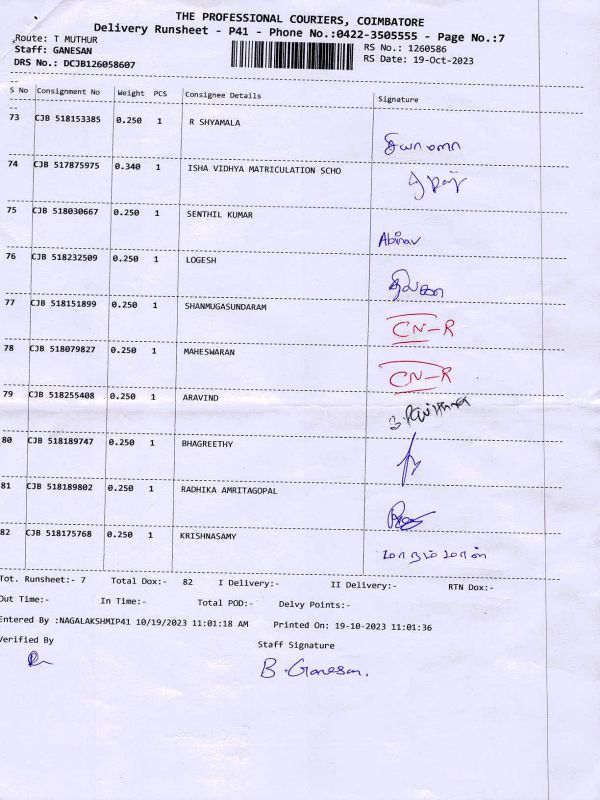 THE PROFESSIONAL COURIERS, COIMBATORE
Delivery Runsheet - P41 - Phone No.:0422-3505555 - Page No.:7
Route: T MUTHUR
RS No.: 1260586
Staff: GANESAN
RS Date: 19-Oct-2023
DRS No.: DCJB126058607
S No Consignment No Weight PCS Consignee Details Signature
73 CJB 518153385 0.250 1 R SHYAMALA
74 CJB 517875975 0.340 1 ISHA VIDHYA MATRICULATION SCHO
75 CJB 518030667 0.250 1 SENTHIL KUMAR Abinav
76 CJB 518232509 0.250 1 LOGESH
77 CJB 518151899 0.250 1 SHANMUGASUNDARAM CN-R
78 CJB 518079827 0.250 1 MAHESWARAN CN-R
79 CJB 518255408 0.250 1 ARAVIND
80 CJB 518189747 0.250 1 BHAGREETHY
81 CJB 518189802 0.250 1 RADHIKA AMRITAGOPAL
82 CJB 518175768 0.250 1 KRISHNASAMY
Tot. Runsheet:- 7 Total Dox:- 82 I Delivery:- II Delivery:- RTN Dox:-
Out Time:- In Time:- Total POD:- Delvy Points:-
Entered By :NAGALAKSHMIP41 10/19/2023 11:01:18 AM Printed On: 19-10-2023 11:01:36
Verified By Staff Signature
B. Ganesan.